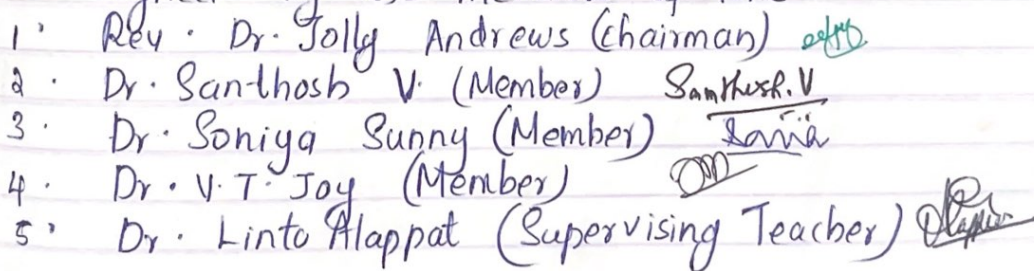 1. Rev. Dr. Jolly Andrews (Chairman)
2. Dr. Santhosh V. (Member) Santhosh.V
3. Dr. Soniya Sunny (Member)
4. Dr. V.T. Joy (Member)
5. Dr. Linto Alappat (Supervising Teacher)